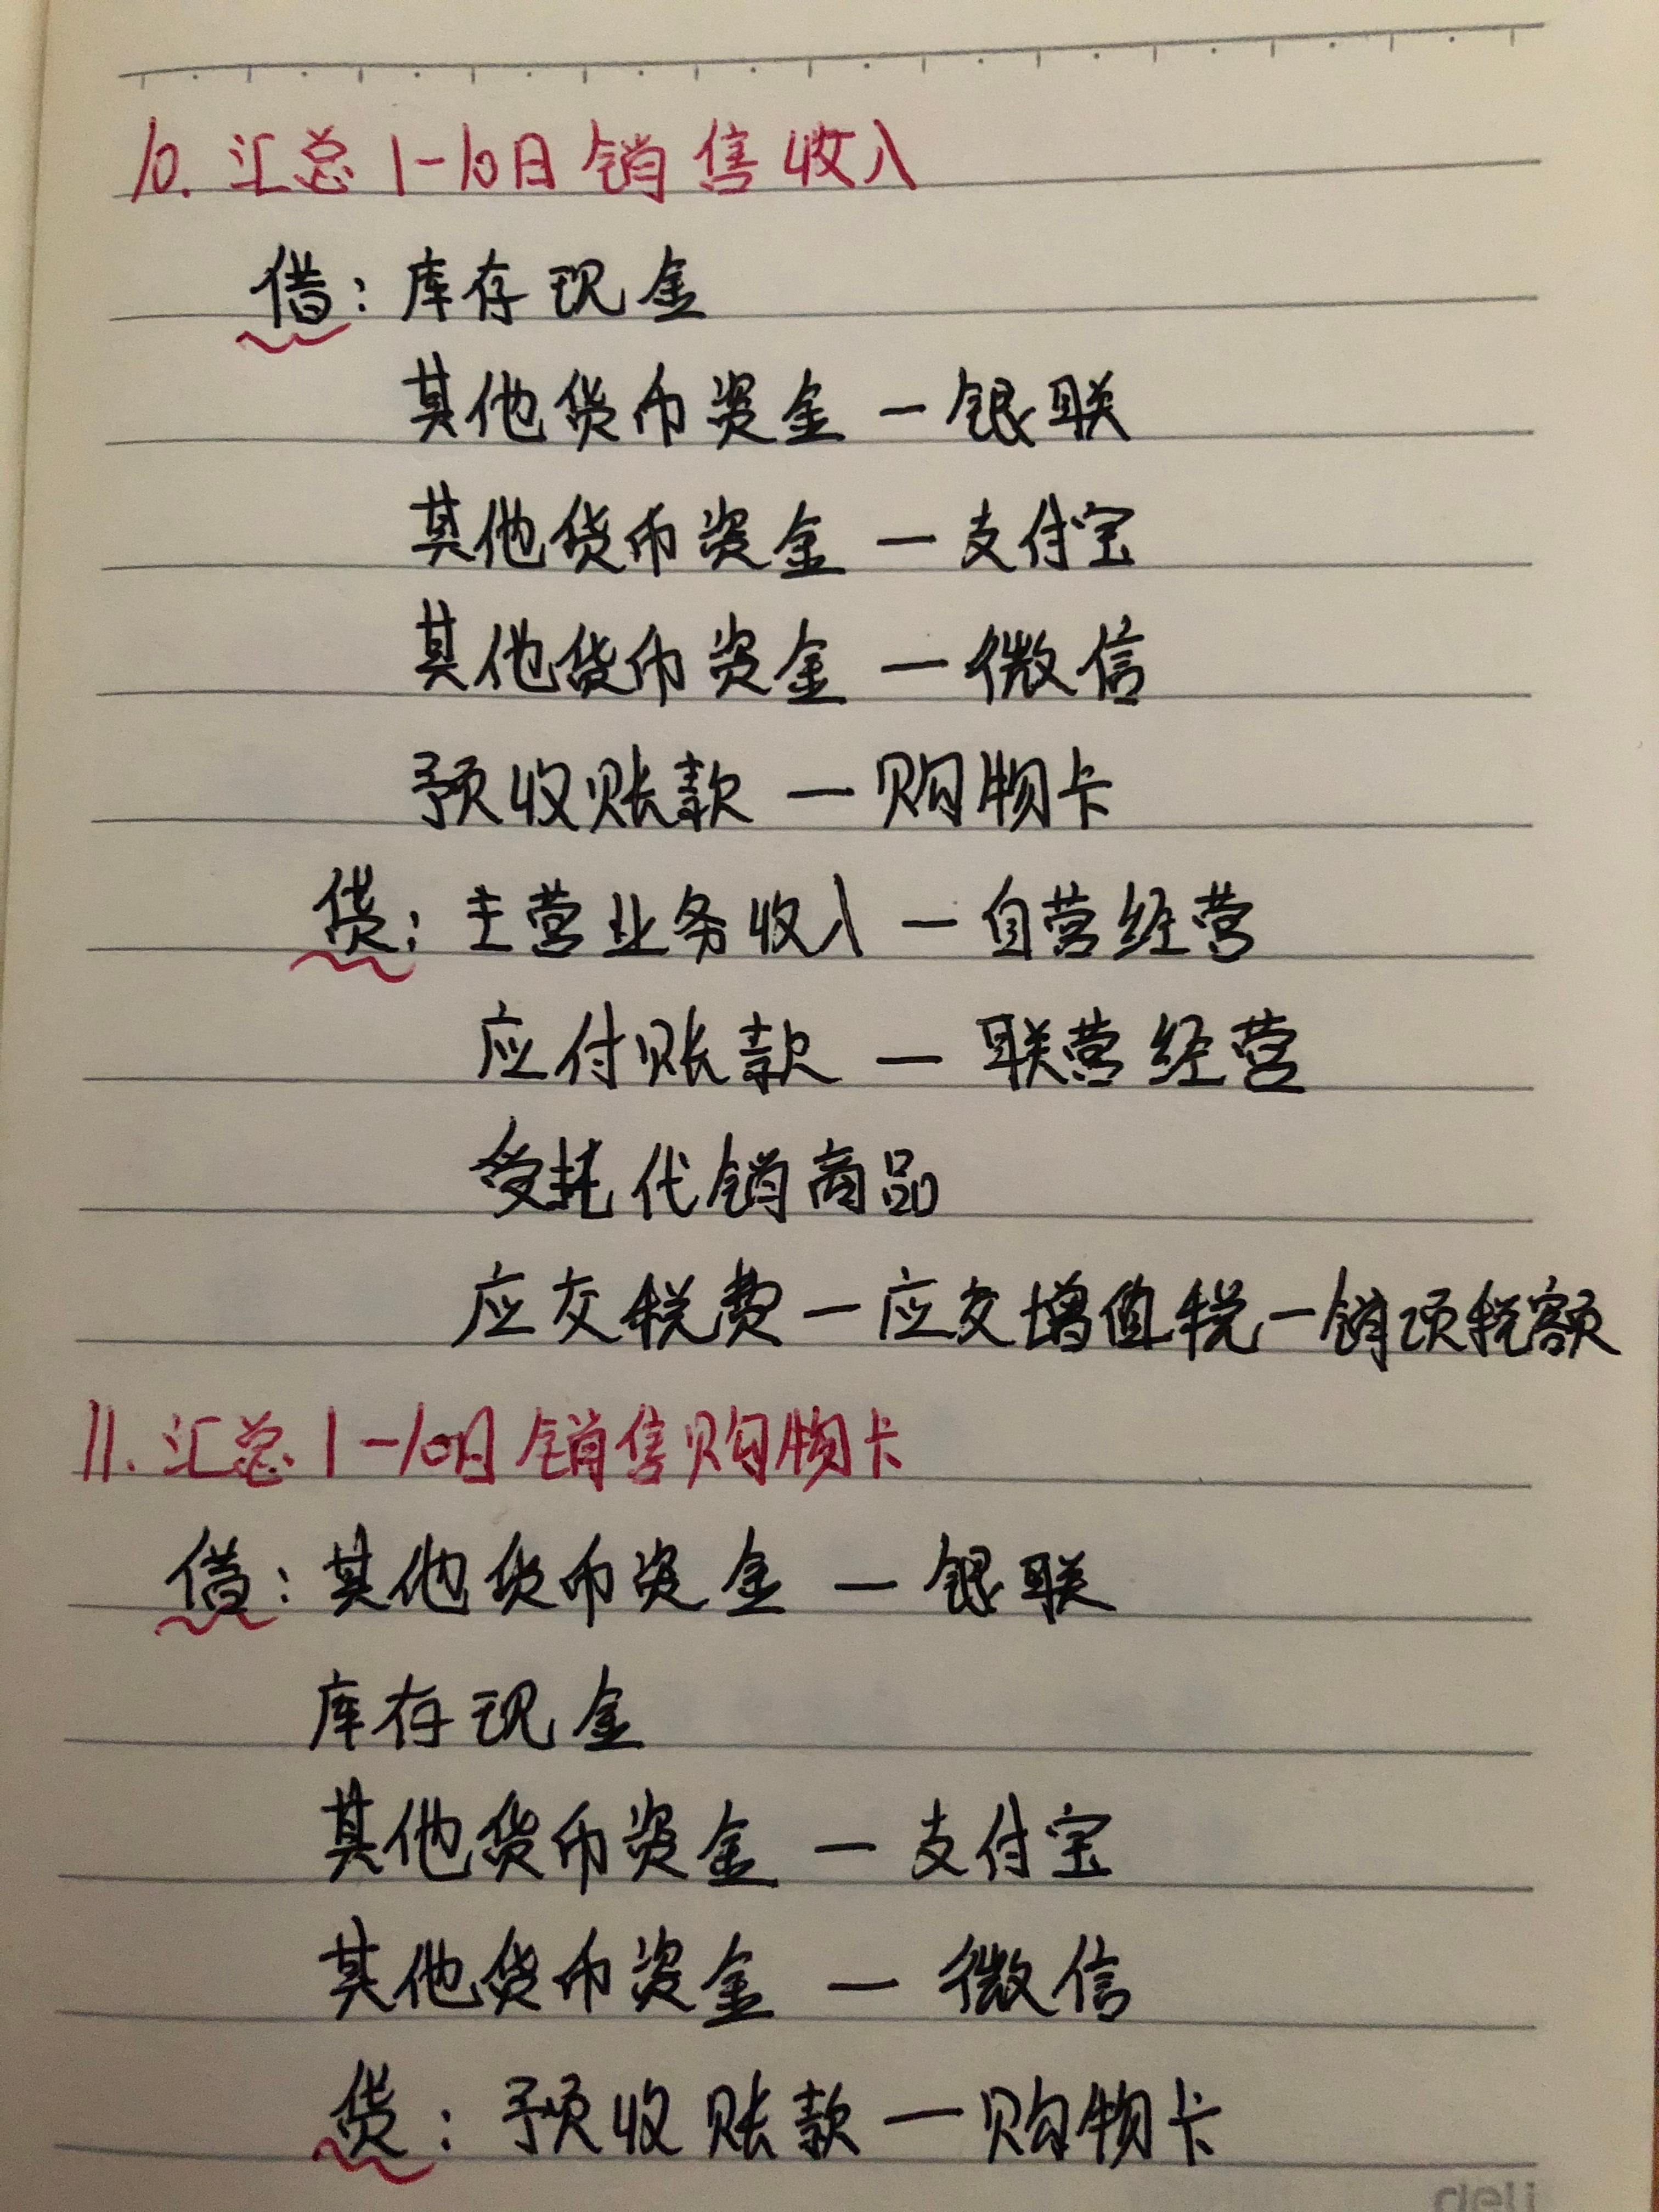 10. 汇总1-10日销售收入
借：库存现金
其他货币资金 — 银联
其他货币资金 — 支付宝
其他货币资金 — 微信
预收账款 — 购物卡
贷：主营业务收入 — 自营经营
应付账款 — 联营经营
受托代销商品
应交税费 — 应交增值税 — 销项税额
11. 汇总1-10日销售购物卡
借：其他货币资金 — 银联
库存现金
其他货币资金 — 支付宝
其他货币资金 — 微信
贷：预收账款 — 购物卡
deli